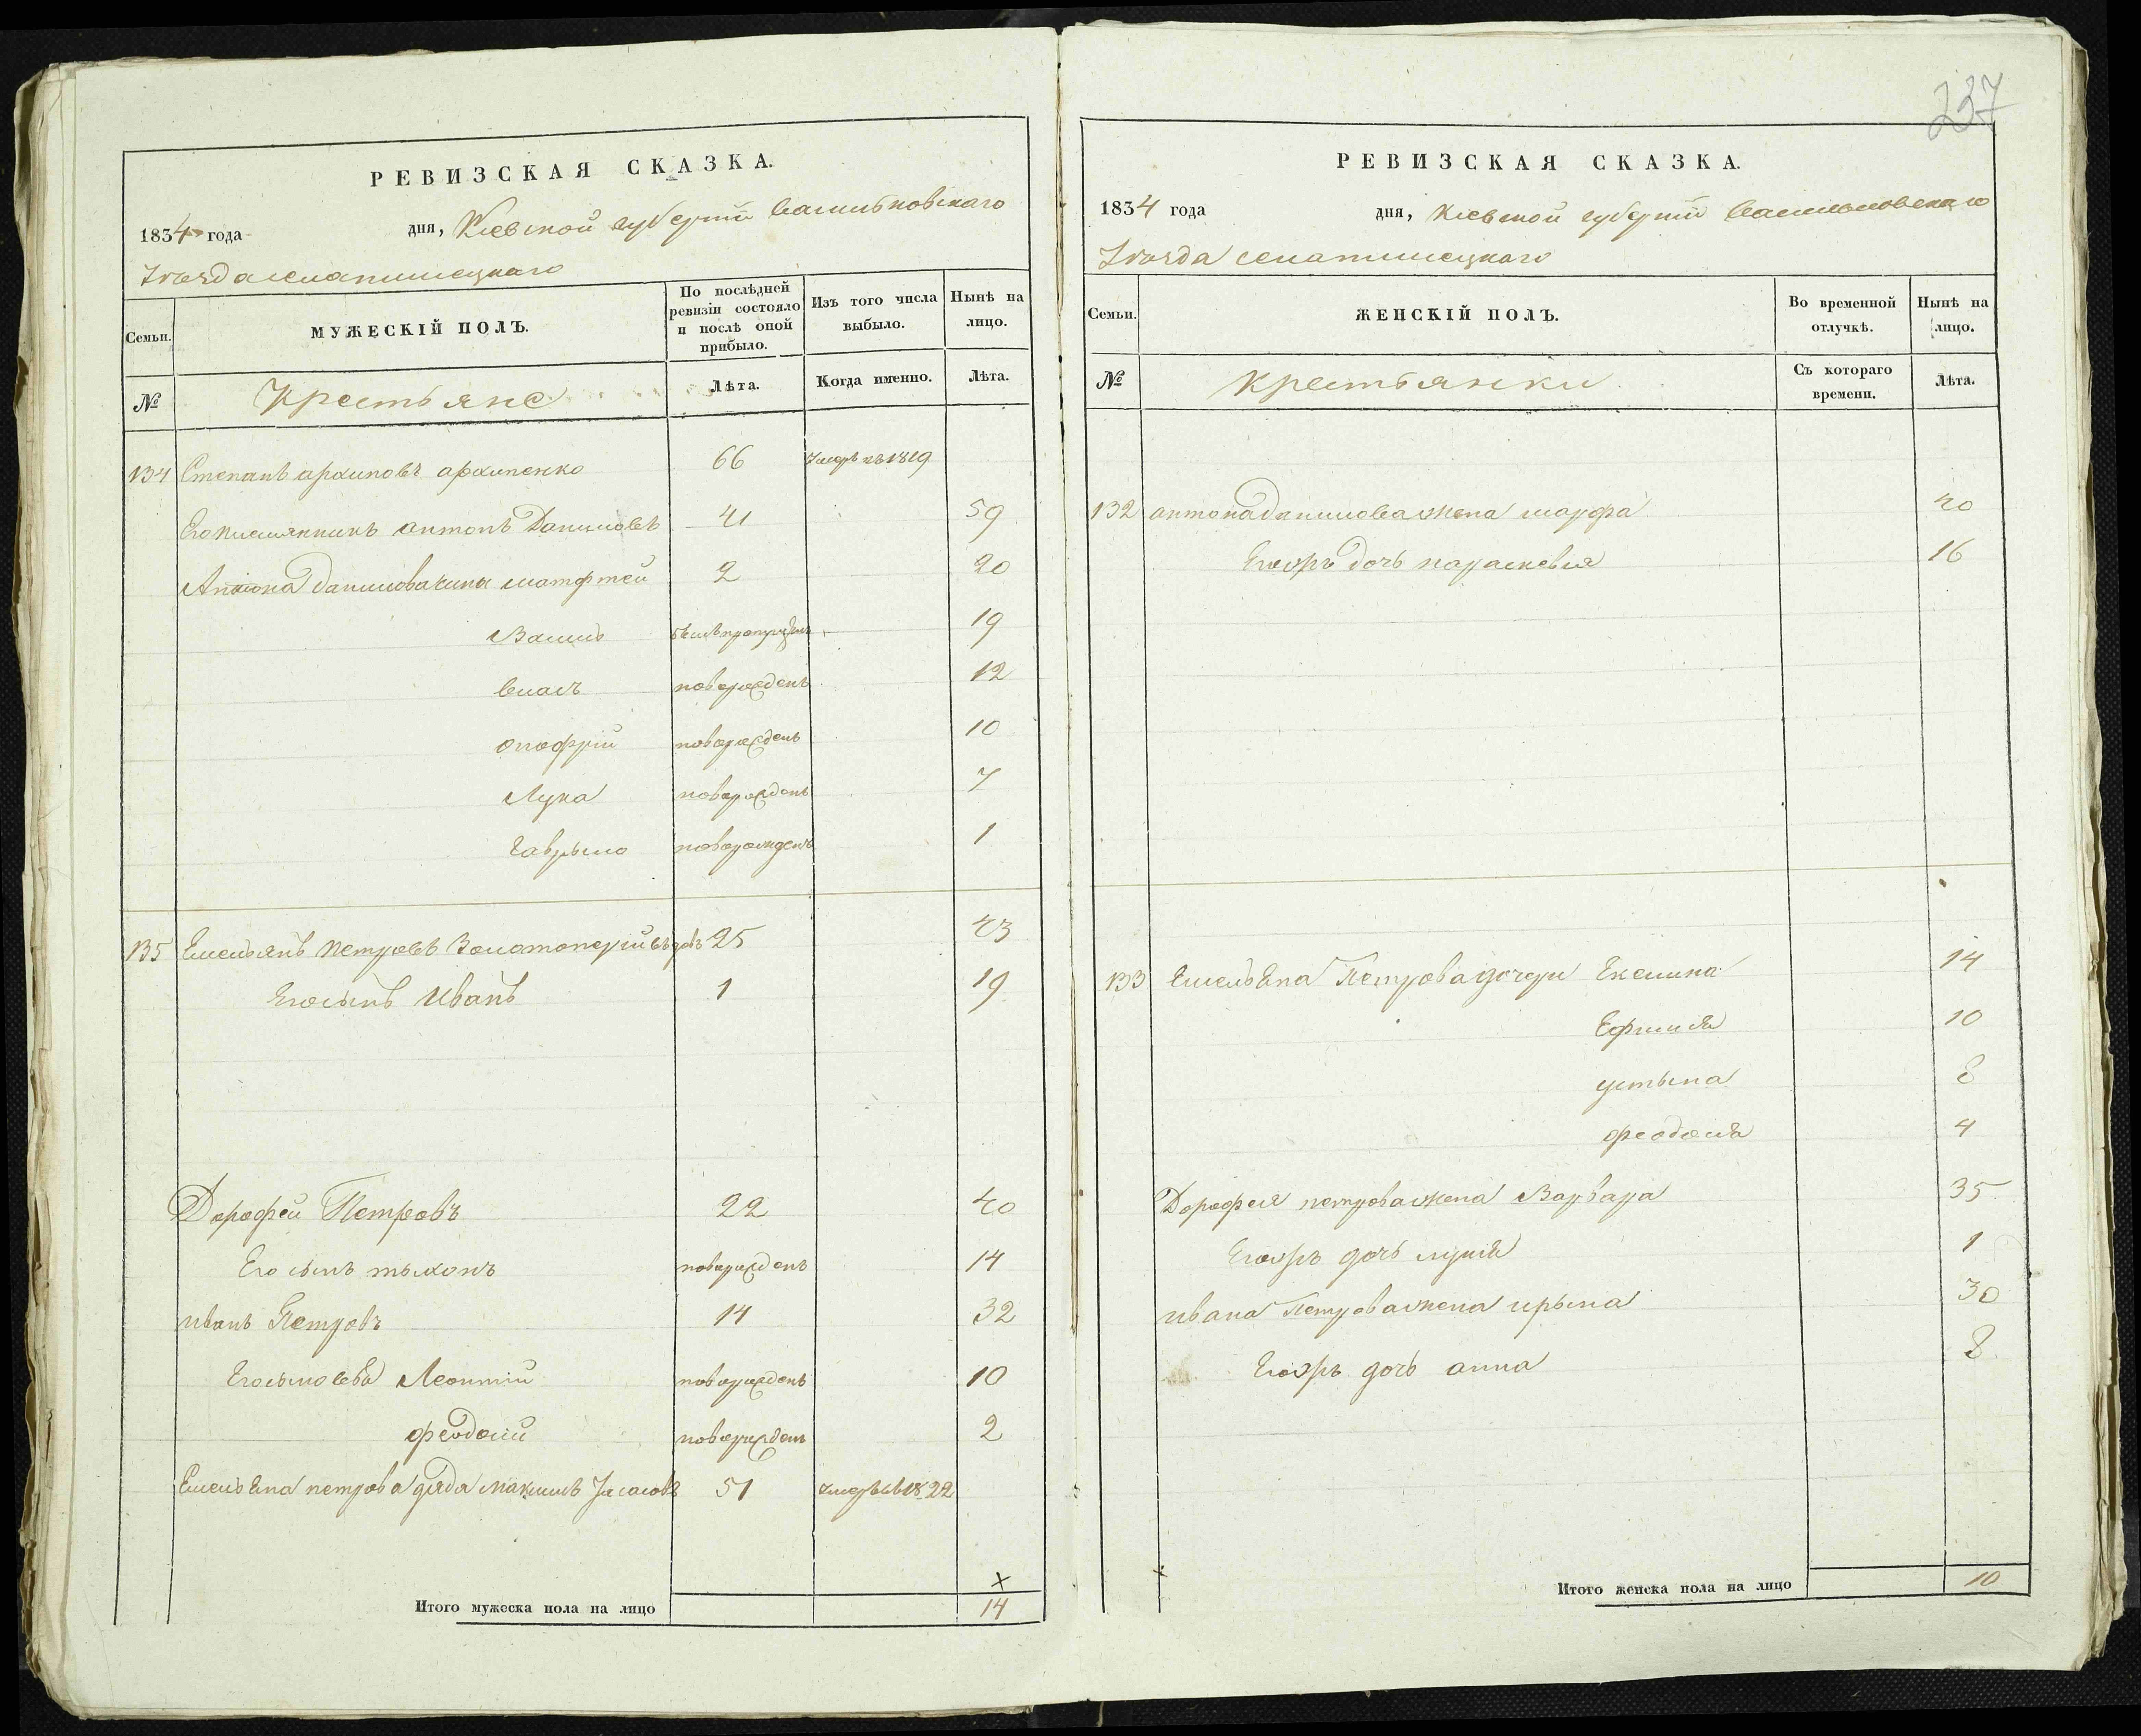 237
РЕВИЗСКАЯ СКАЗКА.
1834 года дня, Киевской губерніи Васильковскаго
Уѣзда села пишецкаго
Семьи. МУЖЕСКІЙ ПОЛЪ. По послѣдней ревизіи состояло и послѣ оной прибыло. Изъ того числа выбыло. Нынѣ на лицо.
№ Крестьяне Лѣта. Когда именно. Лѣта.
134 Степанъ архиповъ архипенко 66 Умеръ въ 1819
Его племянникъ антонъ Даниловъ 41 59
Антона данилова сины матфтей 2 20
Василь былъ пропущенъ 19
власъ новорожденъ 12
онофрій новорожденъ 10
Лука новорожденъ 7
Гаврыло новорожденъ 1
135 Емельянъ петровъ 25 43
Его сынъ Иванъ 1 19
Дорофей Петровъ 22 40
Его сынъ тыхонъ новорожденъ 14
иванъ Петровъ 14 32
Его сыновья Леонтій новорожденъ 10
феодосий новорожденъ 2
Емельяна петрова дядя максимъ 51 умеръ въ 1822
Итого мужеска пола на лицо 14
РЕВИЗСКАЯ СКАЗКА.
1834 года дня, Киевской губерніи Васильковскаго
Уѣзда села пишецкаго
Семьи. ЖЕНСКІЙ ПОЛЪ. Во временной отлучкѣ. Нынѣ на лицо.
№ крестьянки Съ котораго времени. Лѣта.
132 антона данилова жена марфа 40
Егожъ дочь параскевія 16
133 Емельяна Петрова дочери Екелина 14
Ефимия 10
устына 8
феодосия 4
Дорофея петрова жена Варвара 35
Егожъ дочь лукия 1
ивана Петрова жена ирына 30
Егожъ дочь анна 8
Итого женска пола на лицо 10